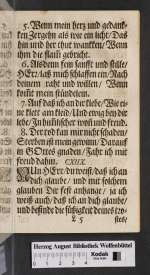 5. Wenn mein hertz und gedanck-
ken Zergehn als wie ein licht/ Das
hin und her thut wanncken/ Wenn
ihm die flam gebricht.
6. Alsdenn fein sanfft und stille/
HErr/ laß mich schlaffen ein/ Nach
deinem raht und willen/ Wenn
kömt mein stündelein.
7. Auf daß ich an dir klebe/ Wie ei-
ne klett am kleid/ Und ewig bey dir
lebe/ In himlischer wonn und freud.
8. Der tod kan mir nicht schaden/
Sterben ist mein gewinn/ Darauf
in GOttes gnaden/ Fahr ich mit
freud dahin. CXLIX.
HERR/ du weist/ daß ich an
dich glaube/ und mit solchem
glauben Dir fest anhange/ ja ich
weiß auch/ daß ich an dich glaube/
und befinde die süßigkeit deines tro-
L 5 stes/
Herzog August Bibliothek Wolfenbüttel
Kodak